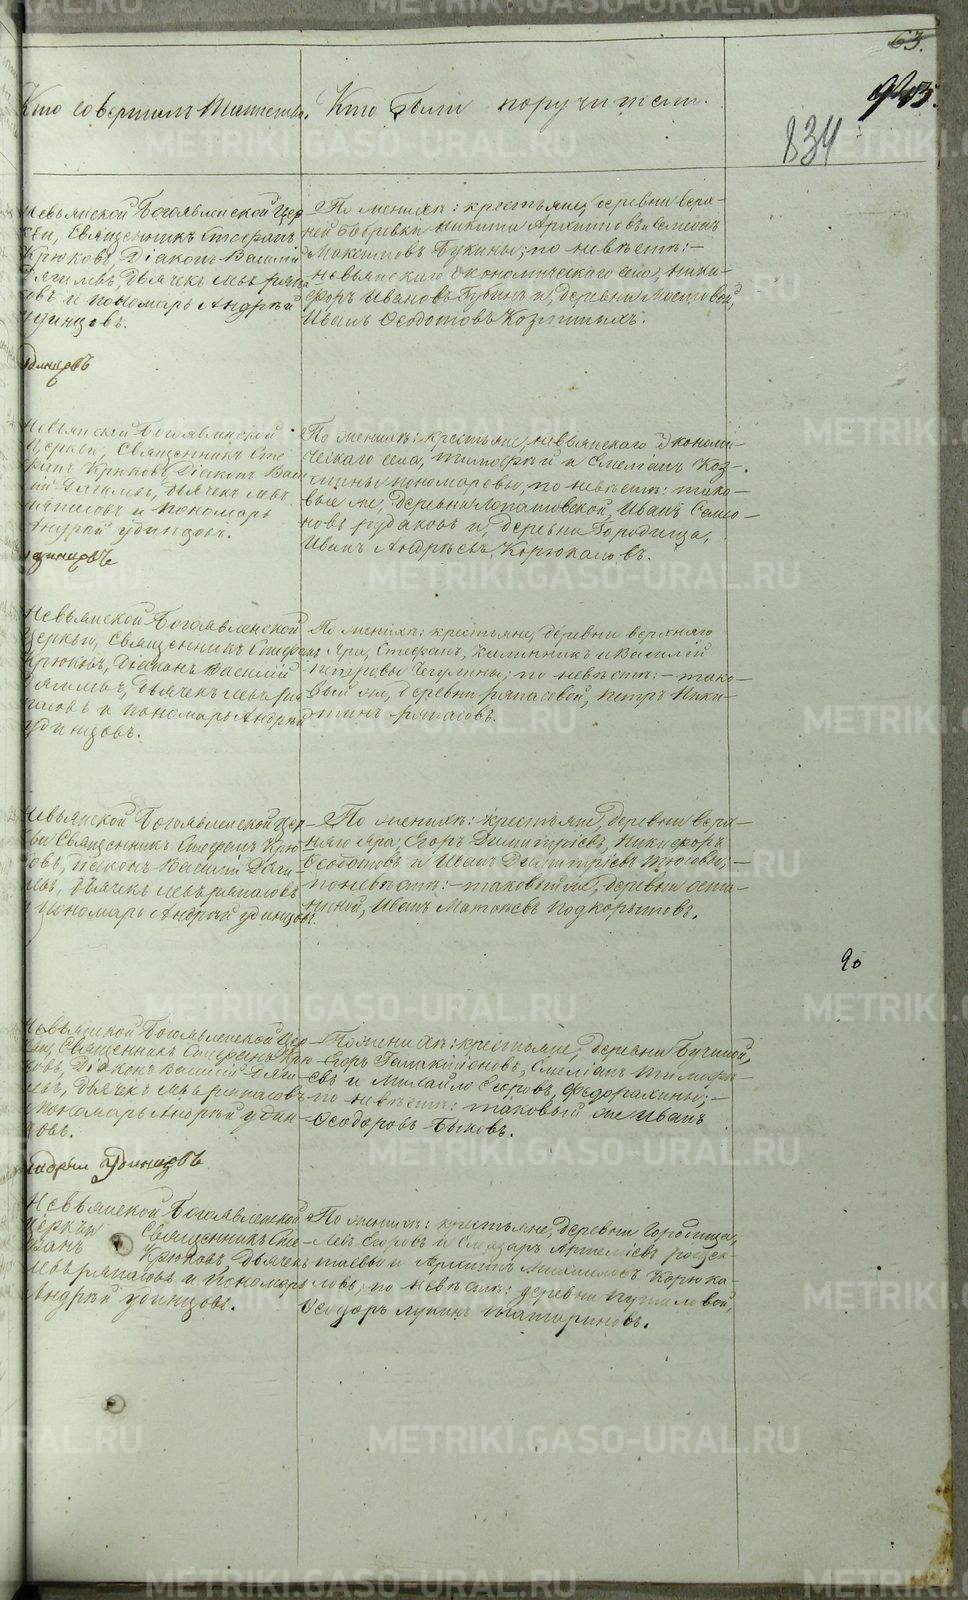 63.
Кто совершилъ Таинство.
Кто были поручители.
834
Невьянской Богоявленской Цер
кви, Священникъ Стефанъ
Крюковъ, Діаконъ Василій
Дягилевъ, Дьячекъ Левъ Ряпа
совъ и пономарь Андрей
Удинцовъ.
Удинцовъ
По женихѣ: крестьяне, деревни верх
ней бобровки Никита Архиповъ и Семенъ
Максимовъ Букины; по невѣстѣ:
невьянскаго Экономическаго села, Ники
форъ Ивановъ Губинъ и, деревни Мостовой,
Иванъ Ѳедотовъ Козминыхъ.
Невьянской Богоявленской
Церкви, Священникъ Сте
фанъ Крюковъ, Діаконъ Васи
лій Дягилевъ, Дьячекъ Левъ
Ряпасовъ и пономарь
Андрей Удинцовъ.
Удинцовъ
По женихѣ: крестьяне, невьянскаго Экономи
ческаго села, Тимофей и Емеліанъ Коз
мины Пономаревы, по невѣстѣ: тако
вые же, деревни Лопатовской, Иванъ Семе
новъ Рудаковъ и, деревни Городища,
Иванъ Андреевъ Корюкаловъ.
Невьянской Богоявленской
Церкви, Священникъ Стефанъ
Крюковъ, Діаконъ Василій
Дягилевъ, Дьячекъ Левъ Ря
пасовъ и пономарь Андрей
Удинцовъ.
По женихѣ: крестьяне, деревни верхняго
Яра, Стефанъ, Калинникъ и Василій
Петровы Чегулины; по невѣстѣ: тако
вый же, деревни Ряпасовой, Петръ Ники
тинъ Ряпасовъ.
Невьянской Богоявленской Цер
кви Священникъ Стефанъ Крю
ковъ, Діаконъ Василій Дяги
левъ, Дьячекъ Левъ Ряпасовъ
и Пономарь Андрей Удинцовъ.
По женихѣ: крестьяне, деревни верх
няго Яра, Егоръ Димитріевъ, Никифоръ
Ѳедотовъ и Иванъ Димитріевъ
по невѣстѣ: таковый же, деревни
Иванъ Матвѣевъ Подкорытовъ.
Невьянской Богоявленской Цер
кви, Священникъ Стефанъ Крю
ковъ, Діаконъ Василій Дяги
левъ, Дьячекъ Левъ Ряпасовъ
и Пономарь Андрей Удин
цовъ.
Андрей Удинцовъ
По женихѣ: крестьяне, деревни
Егоръ Емеліанъ Тимофе
евъ и Михайло Егоровъ,
по невѣстѣ: таковый же Иванъ
Ѳеодоровъ Быковъ.
Невьянской Богоявленской
Церкви Священникъ Сте
фанъ Крюковъ, Дьячекъ
Левъ Ряпасовъ и Пономарь
Андрей Удинцовъ.
По женихѣ: крестьяне, деревни Городища,
Левъ Егоровъ и Елеазаръ Артеміевъ
и Михаиловъ Корюка
ловъ, по невѣстѣ: деревни Путиловой,
Ѳеодоръ Лукинъ Татариновъ.
METRIKI.GASO-URAL.RU